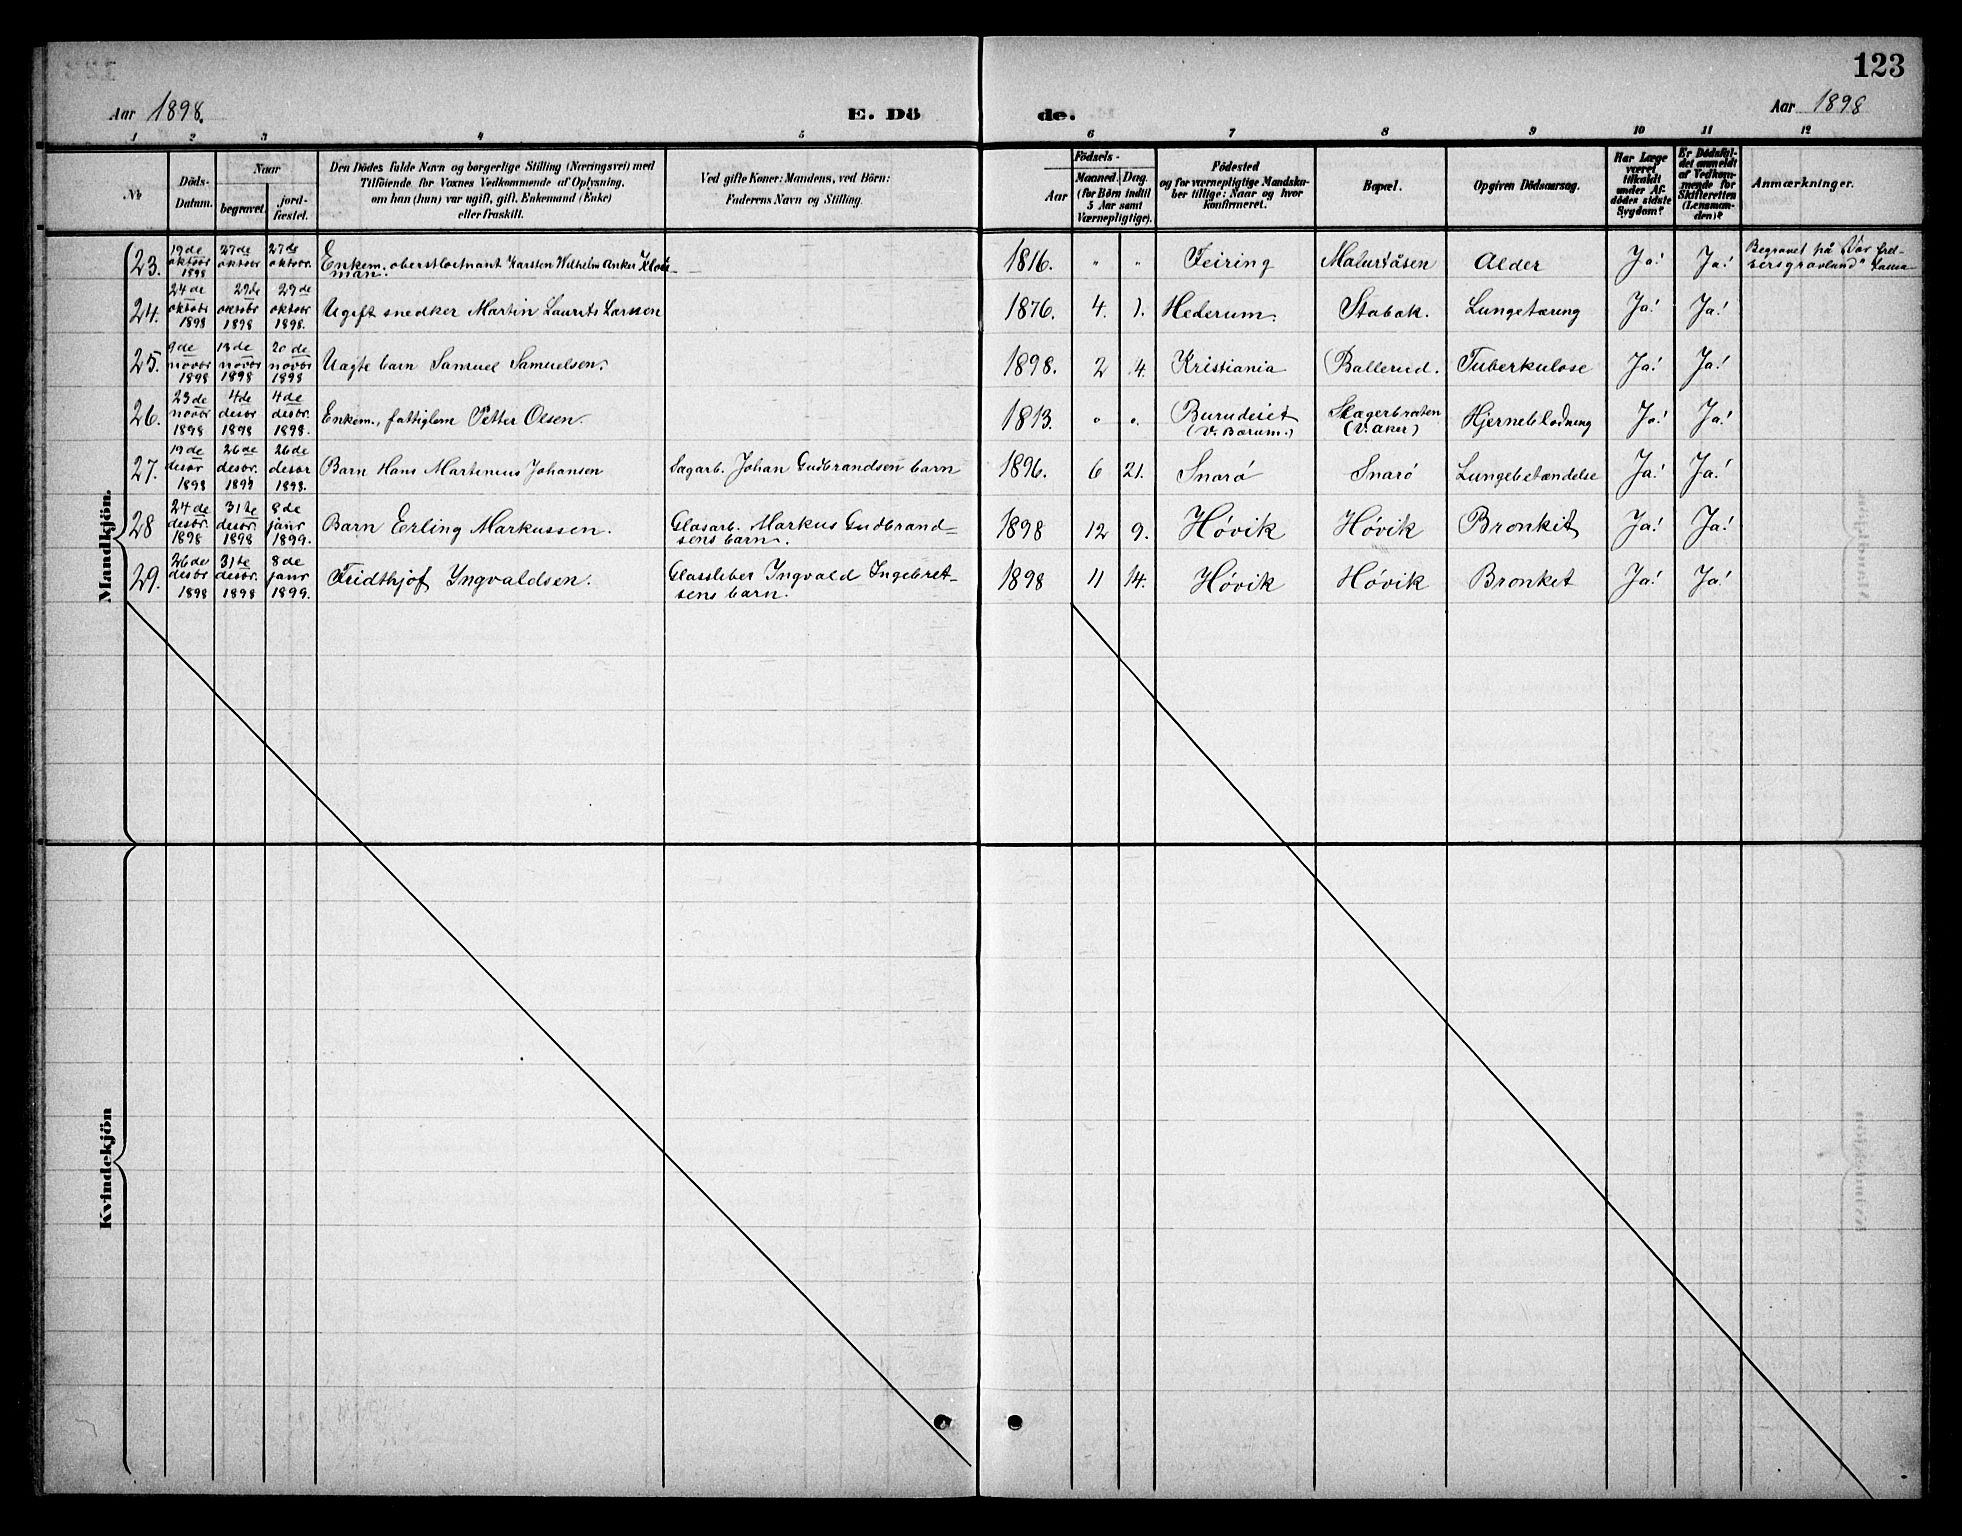 123
Aar 1898. E. Döde. Aar 1898
1 2 3 4 5 6 7 8 9 10 11 12
№
Döds-Datum.
Naar
begravet.
jord-fæstet.
Den Dödes fulde Navn og borgerlige Stilling (Næringsvei) med
Tilföiende for Voxnes Vedkommende af Oplysning,
om han (hun) var ugift, gift, Enkemand (Enke)
eller fraskilt.
Ved gifte Koner: Mandens, ved Börn:
Faderens Navn og Stilling.
Födsels-
Aar
Maaned. Dag.
(for Börn indtil
5 Aar samt
Værnepligtige).
Födested
og for værnepligtige Mandska-
ber tillige: Naar og hvor
konfirmeret.
Bopæl.
Opgiven Dödsaarsag.
Har Læge
været
tilkaldt
under Af-
dödes sidste
Sygdom?
Er Dödsfal-
det anmeldt
af Vedkom-
mende for
Skifteretten
(Lensman-
den)?
Anmærkninger.
Mandkjön.
23. 19de oktobr 1898 27de oktobr 27de oktobr. Enkem. oberstløitnant Karsten Wilhelm Anker 1816. " " Feiring Alder Ja! Ja! Begravet på Vor
man.
24. 24de oktobr 1898 29de oktobr 1898 29de oktobr 1898. Ugift snedker Martin Laurits Larssen 1876. 4. 1. Hederum. Stabæk. Lungetæring Ja! Ja!
25. 9de novbr 1898 13de novbr 1898 20de novbr 1898 Uægte barn Samuel Samuelsen. 1898. 2 4. Kristiania Ballerud. Tuberkulose Ja! Ja!
26. 23de novbr 1898 4de desbr 1898 4de desbr. 1898. Enkem., fattiglem Petter Olsen. 1813. " " Burudeiet (V. Bærum.) (V. Aker) Hjerneblødning Ja! Ja!
27. 19de desbr 1898 26de desbr. 1898 26de desbr 1898. Barn Hans Martinius Johansen Sagarb. Johan Gudbrandsen barn 1896. 6 21. Snarø Snarø Lungebetændelse Ja! Ja!
28 24de desbr. 1898 31te desbr. 1898 8de janr 1899. Barn Erling Markussen. Glasarb. Markus Gudbrand-
sens barn. 1898 12 9. Høvik Høvik Bronkit Ja! Ja!
29. 26de desbr 1898 31te desbr. 1898 8de janr 1899. Fridthjof Yngvaldsen. Glassleber Ingvald Ingebret-
sens barn. 1898 11 14. Høvik Høvik Bronkit Ja! Ja!
Kvindekjön